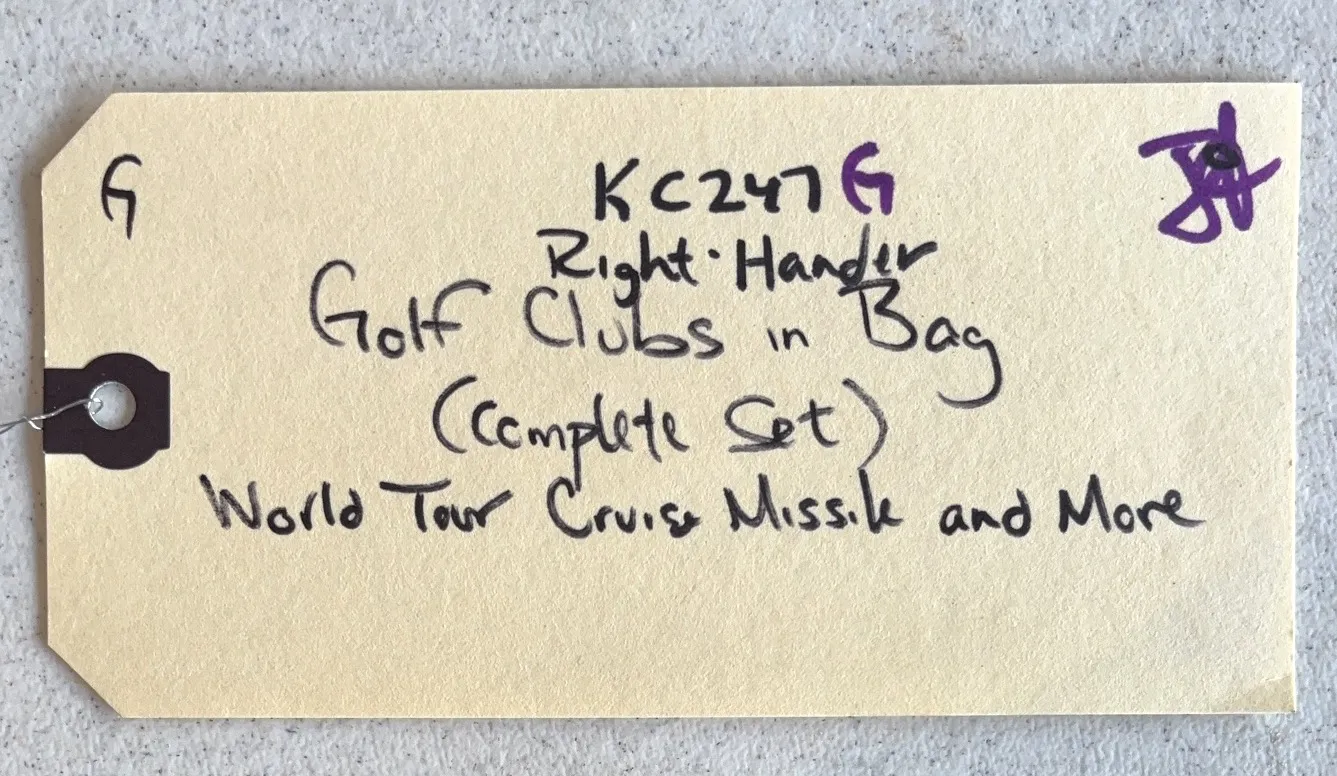 G
KC247G
Right-Hander
Golf Clubs in Bag
(Complete Set)
World Tour Cruise Missile and More